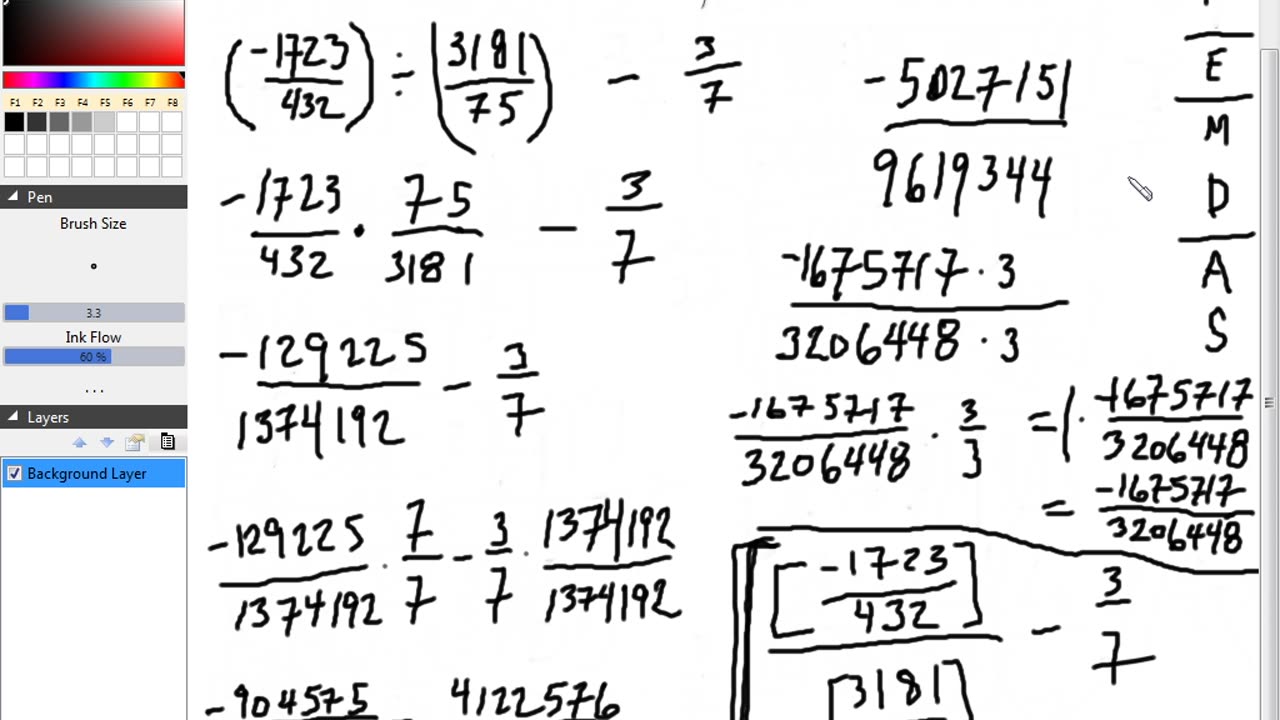 F1 F2 F3 F4 F5 F6 F7 F8
Pen
Brush Size
3.3
Ink Flow
60 %
...
Layers
Background Layer
(-1723/432) ÷ (3181/75) - 3/7
-1723/432 · 75/3181 - 3/7
-129225/1374192 - 3/7
-129225/1374192 · 7/7 - 3/7 · 1374192/1374192
-904575 4122576
-5027151/9619344
-1675717·3/3206448·3
-1675717/3206448 · 3/3 = 1 · -1675717/3206448
= -1675717/3206448
[-1723/432] - 3/7
[3181]
E
M
D
A
S